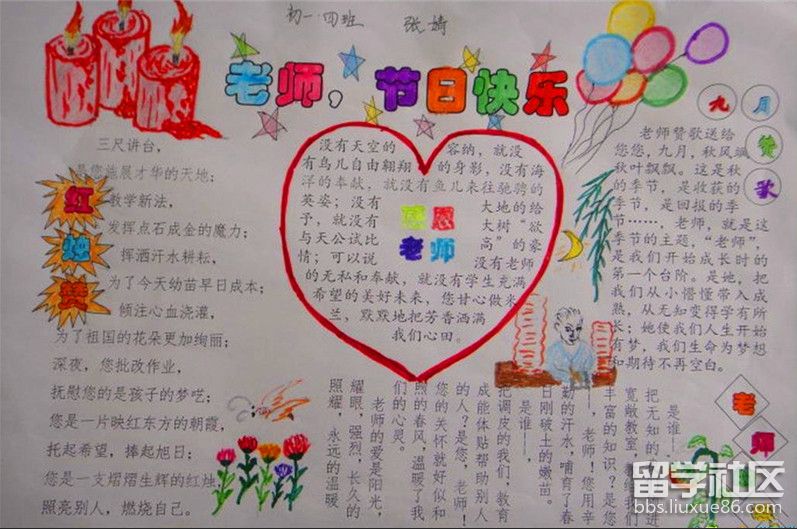 初一·四班 张婧
老师，节日快乐
红烛赞
三尺讲台，
是您施展才华的天地；
教学新法，
发挥点石成金的魔力；
挥洒汗水耕耘，
为了今天幼苗早日成本；
倾注心血浇灌，
为了祖国的花朵更加绚丽；
深夜，您批改作业，
抚慰您的是孩子的梦呓；
您是一片映红东方的朝霞，
托起希望，捧起旭日；
您是一支熠熠生辉的红烛，
照亮别人，燃烧自己。
没有天空的容纳，就没
有鸟儿自由翱翔的身影，没有海
洋的奉献，就没有鱼儿来往驰骋的
英姿；没有大地的给
予，就没有大树“欲
与天公试比高”的豪
情；可以说没有老师
的无私和奉献，就没有学生充满
希望的美好未来，您甘心做米
兰，默默地把芳香洒满
我们心田。
感恩
老师
九月赞歌
老师赞歌送给
您您，九月，秋风飒
秋叶飘飘。这是秋
的季节，是收获的
季节，是回报的季
节……，老师，就是这
季节的主题，“老师”，
是我们开始成长时的
第一个台阶。是她，把
我们从小懵懂带入成
熟，从无知变得学有所
长；她使我们人生开始
有梦，我们生命为梦想
和期待不再空白。
是谁——
把无知的我们
宽敞教室，教给我们
丰富的知识？是您
——，老师！您用辛
勤的汗水，哺育了春
日刚破土的嫩苗。
是谁——，
把调皮的我们，教育
成能体贴帮助别人
的人？是您，老师！
您的关怀就好似和
煦的春风，温暖了我
们的心灵。
老师的爱是阳光，
耀眼，强烈，长久的
照耀，永远的温暖
老师
留学社区
bbs.liuxue86.com